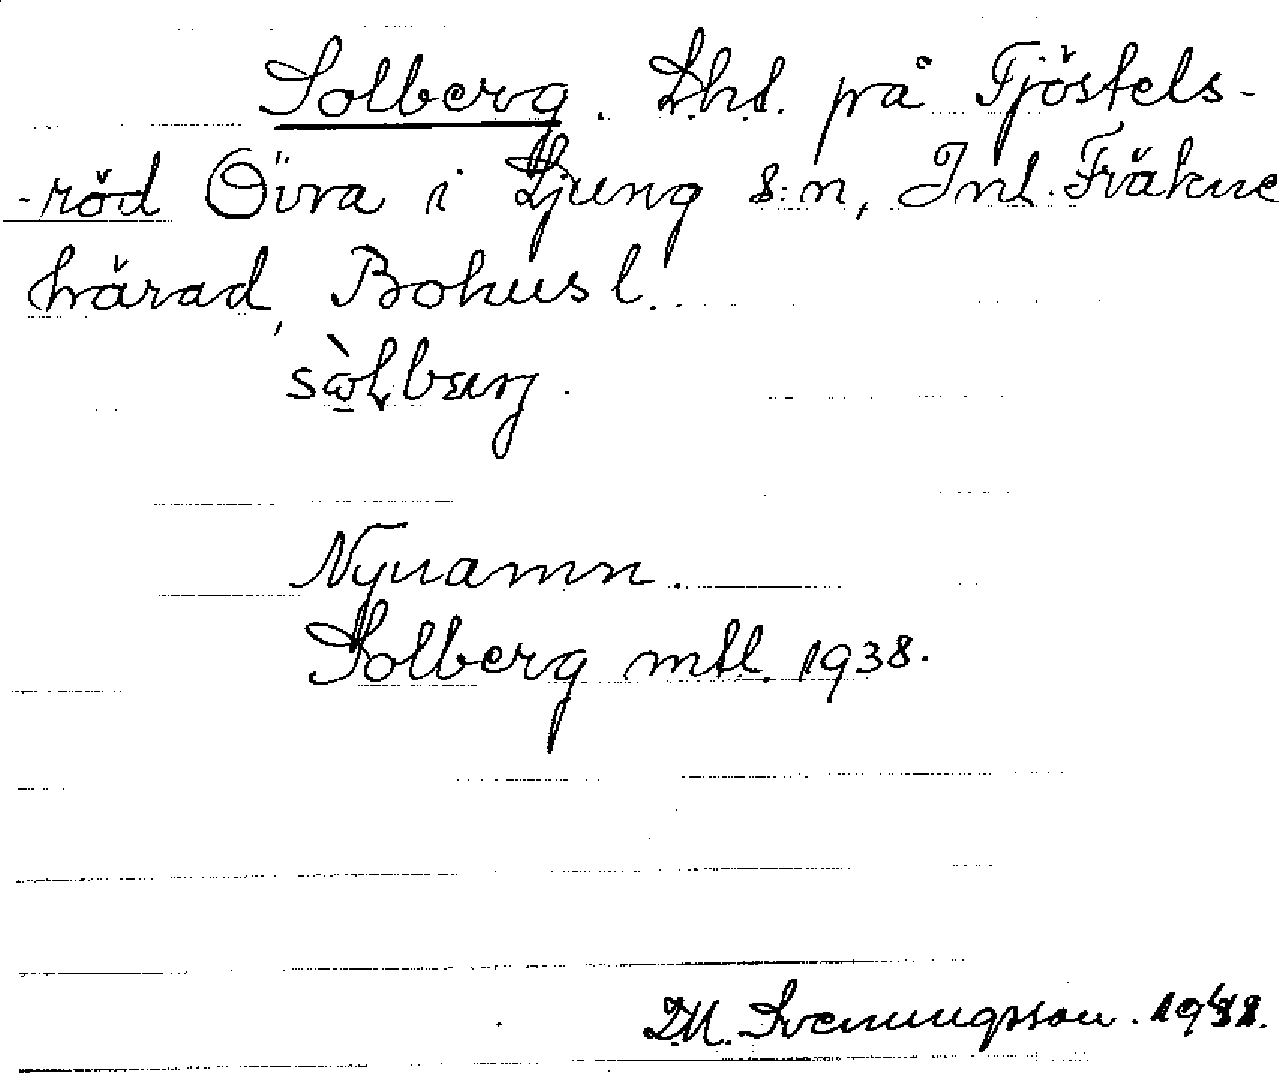 Solberg. Lht. på Fjöstels-
-röd Övra i Ljung s:n, Inl. Fräkne
härad, Bohusl.
Nynamn.
Solberg mtl. 1938.
D.M. Svenungsson.